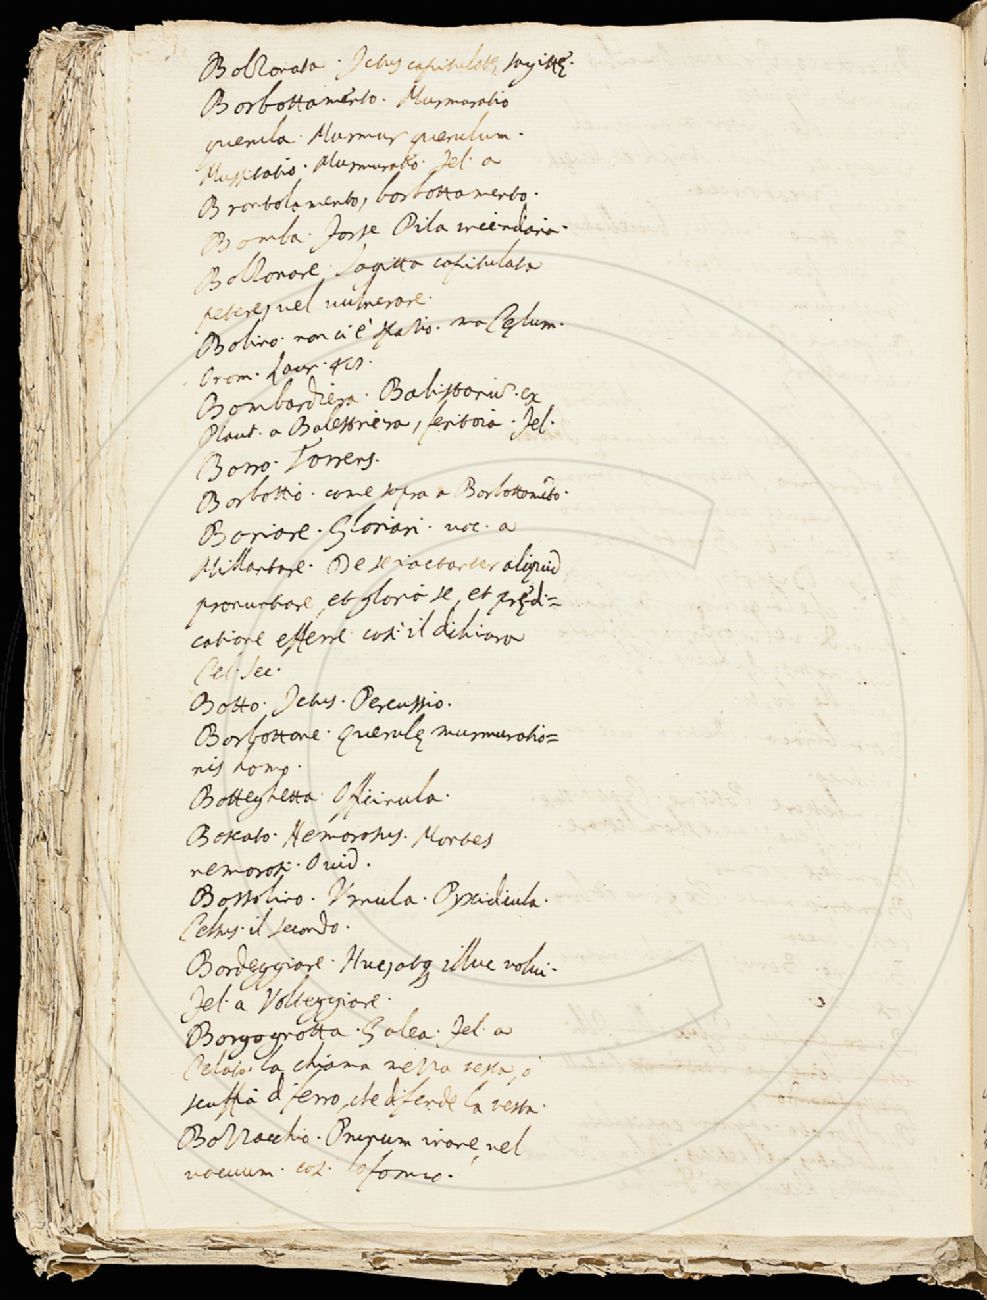 Bolzonata. Ictus capitulatę sagittę.
Borbottamẽto. Murmuratio
querula. Murmur querulum.
Mussitatio. Murmuratio. Fel. a
Brontolamento, borbottamento.
Bomba. Forse Pila incendaria.
Bolzonare. Sagitta capitulata
petere, vel vulnerare.
Bolino. non ci è spatio. ma Cęlum.
Crom. Laur.
Bombardiera. Balistariũ. ex
Plaut. a Balestriera, feritoia. Fel.
Borro. Torrens.
Borbottio. come sopra a Borbottamẽto.
Boriare. Gloriari. voc. a
Millantare. De se iactanter aliquid
pronuntiare, et gloria se, et prędi=
catione efferre. così il dichiara
Cel. sec.
Botto. Ictus. Percussio.
Borbottone. Querulę murmuratio=
nis homo.
Botteghetta. Officinula.
Boscato. Nemorosus. Montes
nemorosi. Ovid.
Bossolino. Urnula. Pyxidicula.
Celsus. il secondo.
Bordeggiare. Huc, atq illuc volvi.
Fel. a Volteggiare.
Borgognotta. Galea. Fel. a
Celata. la chiama mezza testa, o
scuffia d ferro, che difende la testa.
Bozzacchio. Prunum inane, vel
vacuum. così lo